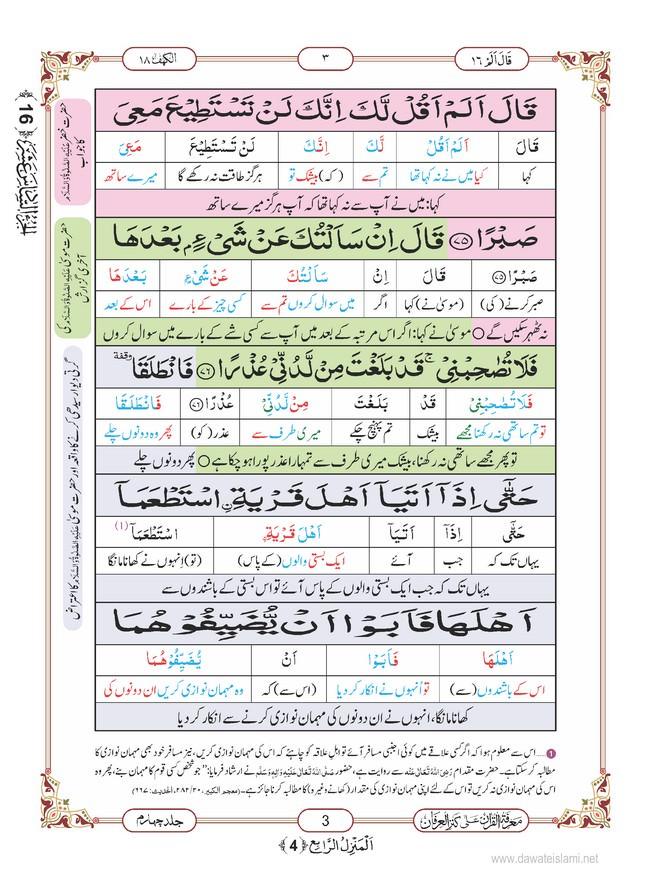 قَالَ اَلَمْ ١٦
٣
الكهف ١٨
قَالَ اَلَمْ اَقُلْ لَّكَ اِنَّكَ لَنْ تَسْتَطِیْعَ مَعِیَ
قَالَ اَلَمْ اَقُلْ لَّكَ اِنَّكَ لَنْ تَسْتَطِیْعَ مَعِیَ
کہا کیا میں نے نہ کہا تھا تم سے (کہ) بیشک تو ہرگز طاقت نہ رکھے گا میرے ساتھ
کہا: میں نے آپ سے نہ کہا تھا کہ آپ ہرگز میرے ساتھ
صَبْرًا ﴿۷۵﴾ قَالَ اِنْ سَاَلْتُكَ عَنْ شَیْءٍۭ بَعْدَهَا
صَبْرًا ﴿۷۵﴾ قَالَ اِنْ سَاَلْتُكَ عَنْ شَیْءٍۭ بَعْدَهَا
صبر کرنے (کی) (موسیٰ نے) کہا اگر میں سوال کروں تم سے کسی چیز کے بارے اس کے بعد
نہ ٹھہر سکیں گے ○ موسیٰ نے کہا: اگر اس مرتبہ کے بعد میں آپ سے کسی شے کے بارے میں سوال کروں
فَلَا تُصٰحِبْنِیْ ۚ قَدْ بَلَغْتَ مِنْ لَّدُنِّیْ عُذْرًا ﴿۷۶﴾ فَانْطَلَقَا ۥ وقفة
فَلَا تُصٰحِبْنِیْ قَدْ بَلَغْتَ مِنْ لَّدُنِّیْ عُذْرًا ﴿۷۶﴾ فَانْطَلَقَا
تو تم ساتھی نہ رکھنا مجھے بیشک تم پہنچ چکے میری طرف سے عذر (کو) پھر وہ دونوں چلے
تو پھر مجھے ساتھی نہ رکھنا، بیشک میری طرف سے تمہارا عذر پورا ہو چکا ہے ○ پھر دونوں چلے
حَتّٰۤی اِذَاۤ اَتَیَاۤ اَهْلَ قَرْیَةِ ِۨ اسْتَطْعَمَاۤ
حَتّٰۤی اِذَاۤ اَتَیَاۤ اَهْلَ قَرْیَةِ ِۨ اسْتَطْعَمَاۤ (1)
یہاں تک کہ جب آئے ایک بستی والوں (کے پاس) (تو) انہوں نے کھانا مانگا
یہاں تک کہ جب ایک بستی والوں کے پاس آئے تو اس بستی کے باشندوں سے
اَهْلَهَا فَاَبَوْا اَنْ یُّضَیِّفُوْهُمَا
اَهْلَهَا فَاَبَوْا اَنْ یُّضَیِّفُوْهُمَا
اس کے باشندوں (سے) تو اُنہوں نے انکار کر دیا (اس سے) کہ وہ مہمان نوازی کریں ان دونوں کی
کھانا مانگا، انہوں نے ان دونوں کی مہمان نوازی کرنے سے انکار کر دیا
حضرت خضر عَلَيْهِ الصَّلٰوةُ وَالسَّلَام کا جواب
حضرت موسیٰ عَلَيْهِ الصَّلٰوةُ وَالسَّلَام کی آخری گزارش
گرتی دیوار سیدھی کرنے کا واقعہ اور حضرت موسیٰ عَلَيْهِ الصَّلٰوةُ وَالسَّلَام کا اعتراض
﴿16﴾
❶ … اس سے معلوم ہوا کہ اگر کسی علاقے میں کوئی اجنبی مسافر آئے تو اہلِ علاقہ کو چاہئے کہ اس کی مہمان نوازی کریں، نیز مسافر خود بھی مہمان نوازی کا
مطالبہ کر سکتا ہے۔ حضرت مقدام رَضِیَ اللهُ تَعَالٰی عَنْہ سے روایت ہے، حضور صَلَّی اللهُ تَعَالٰی عَلَیْہِ وَاٰلِہٖ وَسَلَّم نے ارشاد فرمایا: "جو شخص کسی قوم کا مہمان بنے، پھر وہ
اس کی مہمان نوازی نہ کریں تو اس کے لئے اپنی مہمان نوازی کی مقدار (کھانے وغیرہ) کا مطالبہ کرنا جائز ہے۔ (معجم الکبیر، ۲۰/ ۲۸۲، الحدیث: ٦٦٧)
مَعْرِفَةُ الْقُرْآن عَلٰی کَنْزِ الْعِرْفَان
3
جلد چہارم
اَلْمَنْزِلُ الرَّابِع ﴿4﴾
www.dawateislami.net